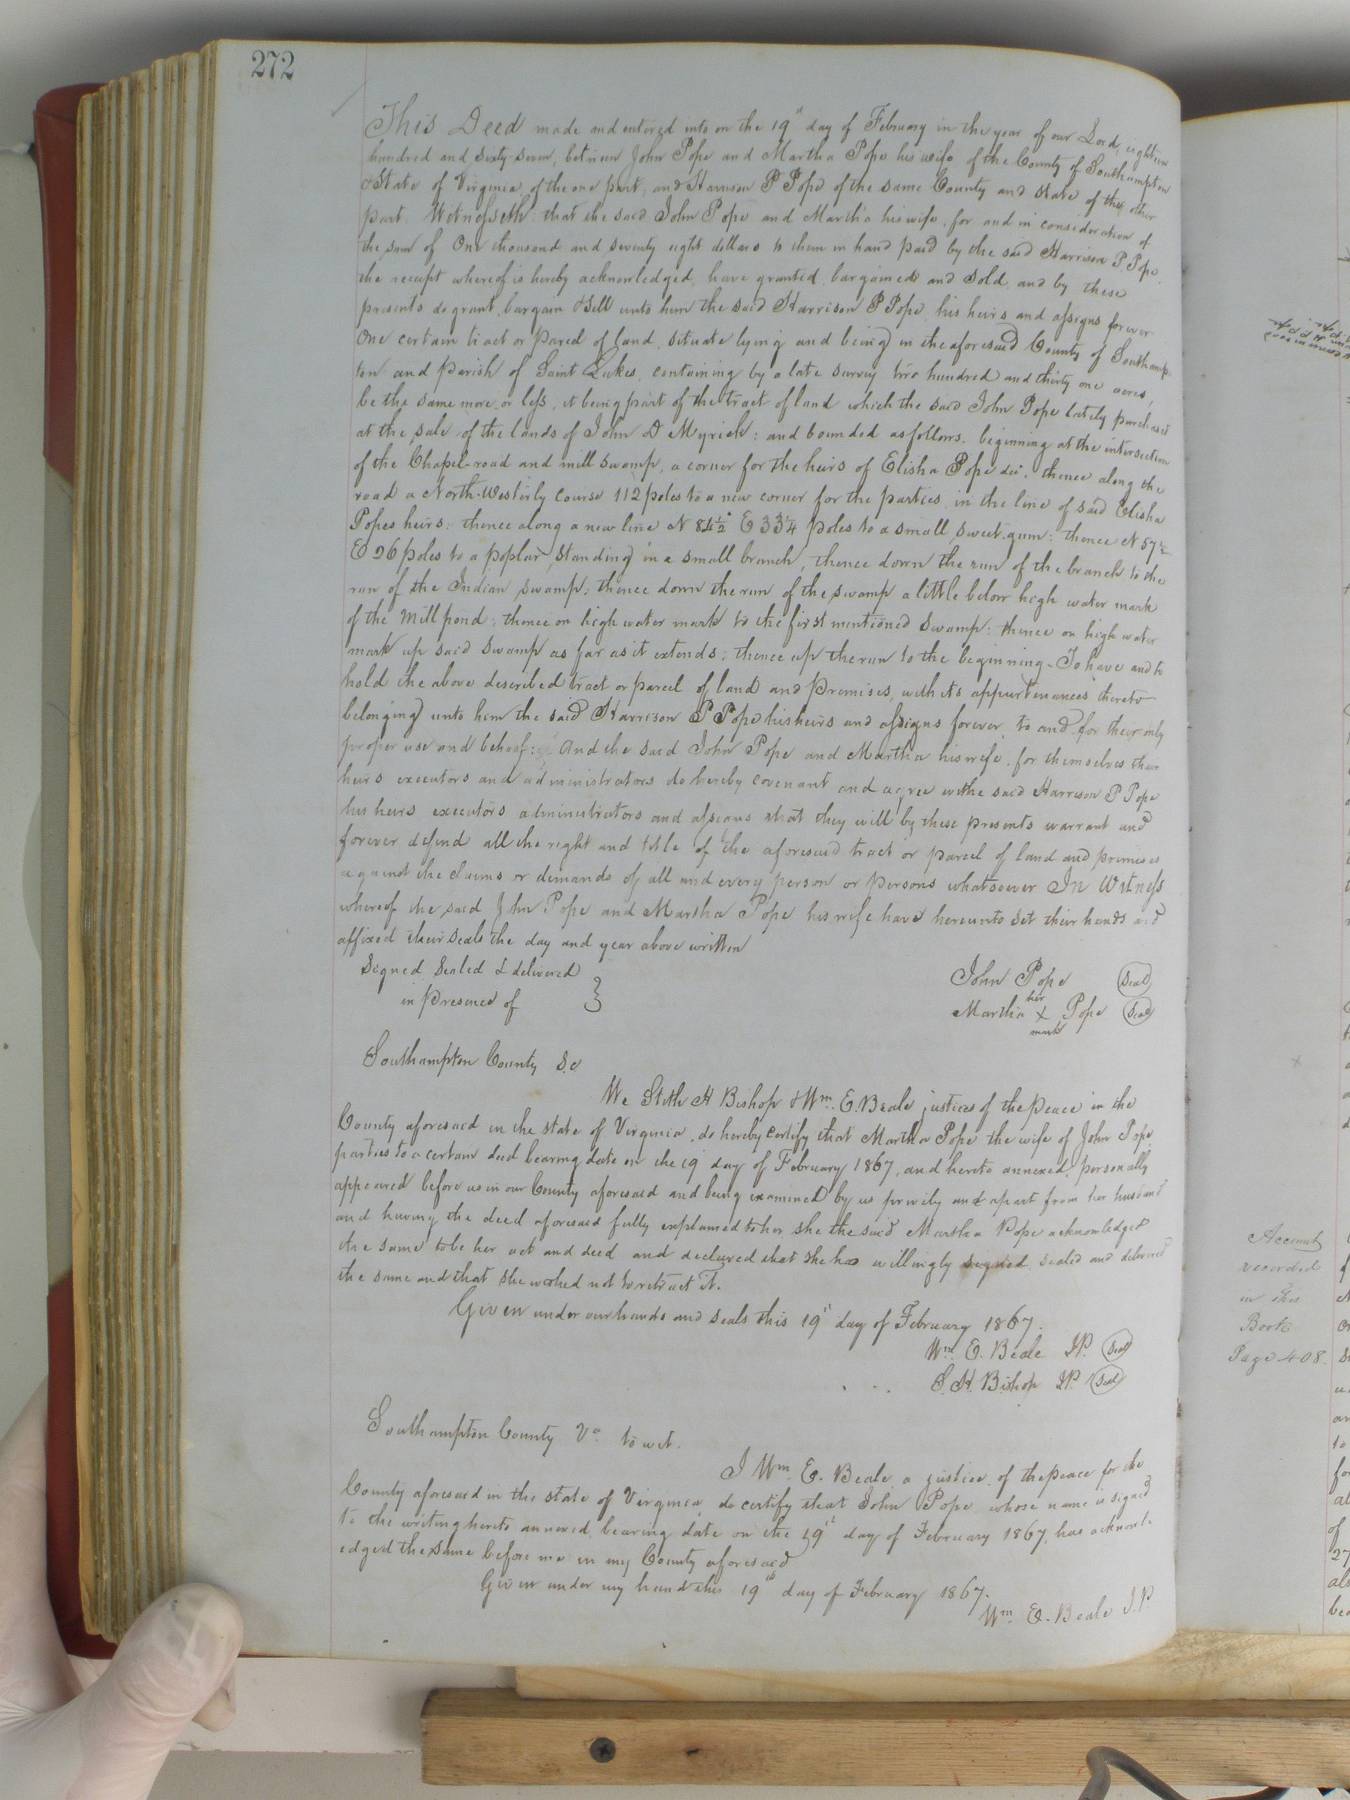 272
This Deed made and entered into on the 19th day of February in the year of our Lord, eighteen
hundred and sixty-seven, between John Pope and Martha Pope his wife of the County of Southampton
& State of Virginia, of the one part, and Harrison P Pope of the same County and State of the other
part. Witnesseth that the said John Pope and Martha his wife, for and in consideration of
the sum of One thousand and seventy eight dollars to them in hand paid by the said Harrison P. Pope
the receipt whereof is hereby acknowledged, have granted, bargained and sold, and by these
presents do grant, bargain & sell unto him the said Harrison P Pope, his heirs and assigns forever
One certain tract or parcel of land, situate lying and being in the aforesaid County of Southamp-
ton and parish of Saint Lukes, containing by a late survey two hundred and thirty one acres,
be the same more or less, it being part of the tract of land which the said John Pope lately purchased
at the sale of the lands of John D Myrick: and bounded as follows. beginning at the intersection
of the Chapel-road and mill swamp, a corner for the heirs of Elisha Pope dec. thence along the
road a North-Westerly course 112 poles to a new corner for the parties in the line of said Elisha
Popes heirs: thence along a new line N 84½° E 334 poles to a small sweet gum: thence N 57½
E 26 poles to a poplar, standing in a small branch, thence down the run of the branch to the
run of the Indian swamp; thence down the run of the swamp a little below high water mark
of the Mill pond; thence on high water mark to the first mentioned swamp: thence on high water
mark up said swamp as far as it extends; thence up the run to the beginning - To have and to
hold the above described tract or parcel of land and Premises, with its appurtenances thereto
belonging unto him the said Harrison P Pope his heirs and assigns forever, to and for their only
proper use and behoof: And the said John Pope and Martha his wife, for themselves their
heirs executors and administrators do hereby covenant and agree withe said Harrison P Pope
his heirs executors administrators and assigns that they will by these presents warrant and
forever defend all the right and title of the aforesaid tract or parcel of land and premises
against the claims or demands of all and every person or persons whatsoever In Witness
whereof the said John Pope and Martha Pope his wife have hereunto set their hands and
affixed their seals the day and year above written
Signed Sealed & delivered
in Presence of
John Pope (Seal)
her
Martha X Pope (Seal)
mark
Southampton County Sc
We Stith H Bishop & Wm. E. Beale justices of the peace in the
County aforesaid in the state of Virginia, do hereby certify that Martha Pope the wife of John Pope
parties to a certain deed bearing date on the 19 day of February 1867, and hereto annexed, personally
appeared before us in our County aforesaid and being examined by us privily and apart from her husband
and having the deed aforesaid fully explained to her she the said Martha Pope acknowledged
the same to be her act and deed and declared that she has willingly signed, sealed and delivered
the same and that she wished not to retract it.
Given under our hands and seals this 19th day of February 1867.
Wm. E. Beale JP. (Seal)
S. H. Bishop JP. (Seal)
Southampton County Va. to wit.
I Wm. E. Beale a justice of the peace for the
County aforesaid in the state of Virginia, do certify that John Pope whose name is signed
to the writing hereto annexed bearing date on the 19th day of February 1867, has acknowl-
edged the same before me in my County aforesaid
Given under my hand this 19th day of February 1867.
Wm E. Beale J.P.
Account
recorded
in this
Book
Page 408.